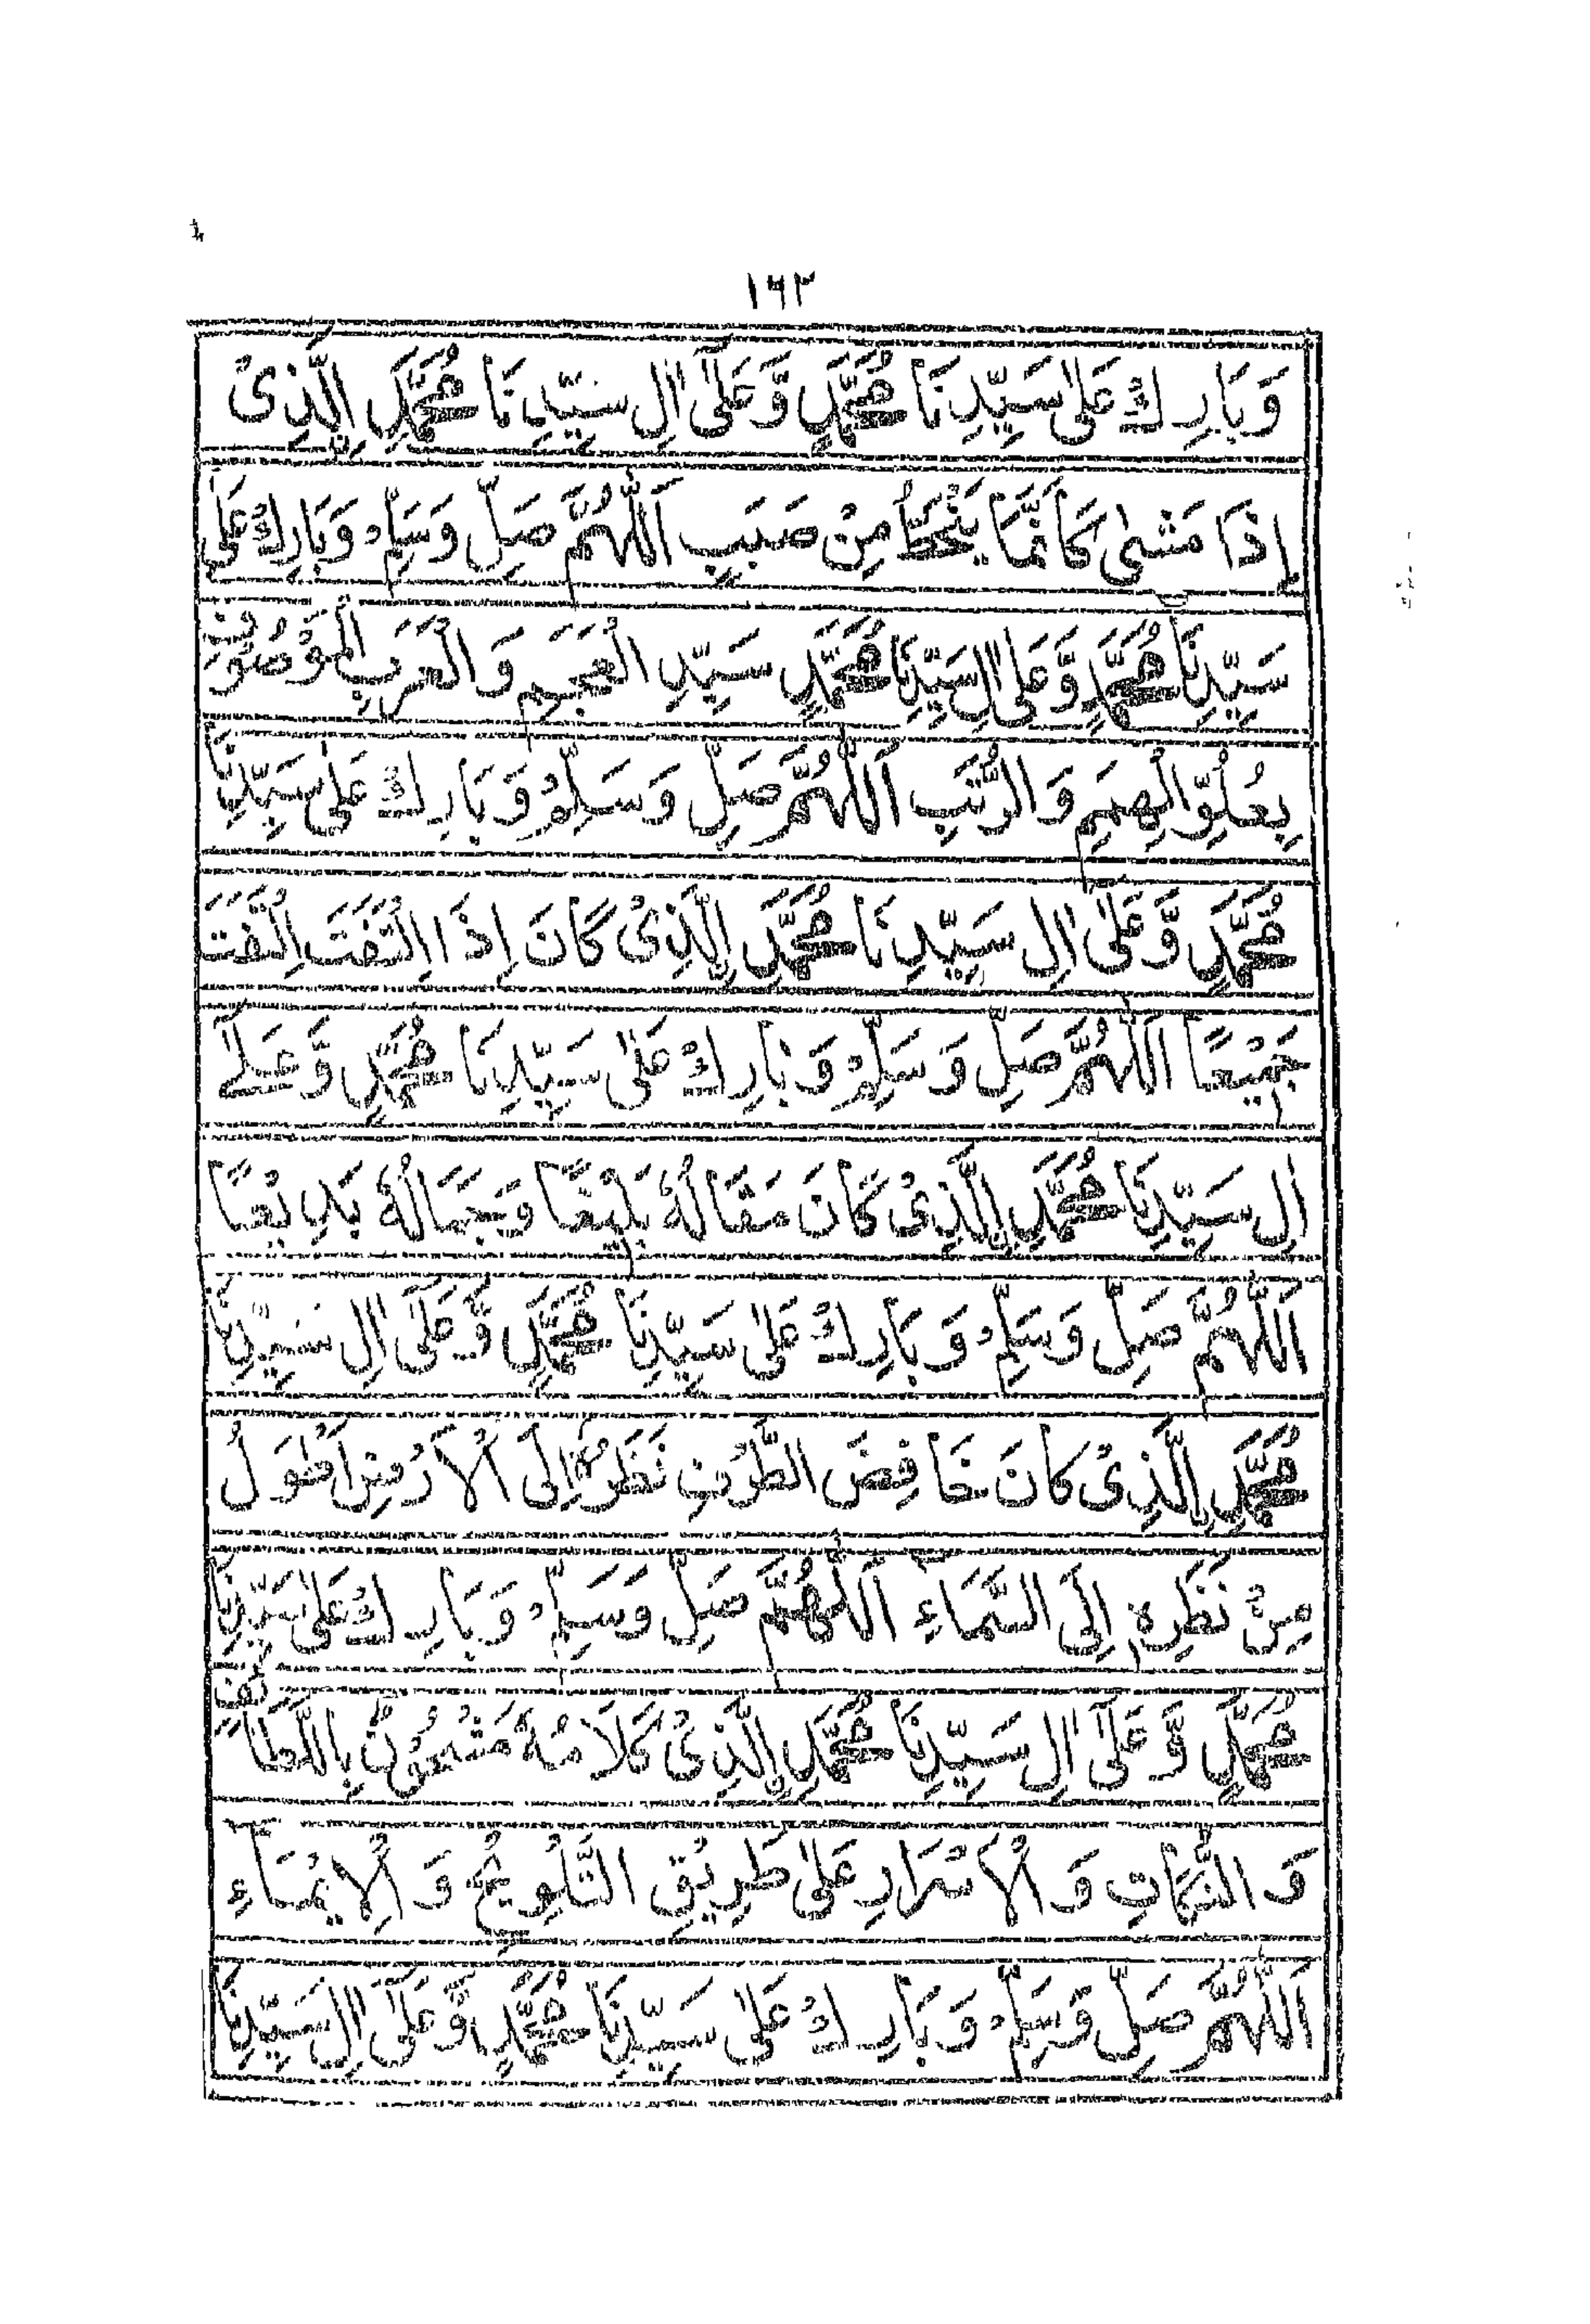 ١٦٣
وَبَارِكْ عَلٰى سَيِّدِنَا مُحَمَّدٍ وَّعَلٰۤى اٰلِ سَيِّدِنَا مُحَمَّدِ نِ الَّذِىْ
إِذَا مَشٰى كَاَنَّمَا يَنْحَطُّ مِنْ صَبَبٍ اَللّٰهُمَّ صَلِّ وَسَلِّمْ وَبَارِكْ عَلٰى
سَيِّدِنَا مُحَمَّدٍ وَّعَلٰى اٰلِ سَيِّدِنَا مُحَمَّدٍ سَيِّدِ الْعَجَمِ وَ الْعَرَبِ الْمَوْصُوْفِ
بِعُلُوِّ الْهِمَمِ وَ الرُّتَبِ اَللّٰهُمَّ صَلِّ وَسَلِّمْ وَ بَارِكْ عَلٰى سَيِّدِنَا
مُحَمَّدٍ وَّعَلٰۤى اٰلِ سَيِّدِنَا مُحَمَّدِ نِ الَّذِىْ كَانَ اِذَا الْتَفَتَ اِلْتَفَتَ
جَمِيْعًا اَللّٰهُمَّ صَلِّ وَسَلِّمْ وَ بَارِكْ عَلٰى سَيِّدِنَا مُحَمَّدٍ وَّعَلٰۤى
اٰلِ سَيِّدِنَا مُحَمَّدِ نِ الَّذِىْ كَانَ مَقَالُهٗ بَلِيْغًا وَجَمَالُهٗ بَدِيْعًا
اَللّٰهُمَّ صَلِّ وَسَلِّمْ وَ بَارِكْ عَلٰى سَيِّدِنَا مُحَمَّدٍ وَّعَلٰۤى اٰلِ سَيِّدِنَا
مُحَمَّدِ نِ الَّذِىْ كَانَ خَافِضَ الطَّرْفِ نَظَرُهٗ اِلَى الْاَرْضِ اَطْوَلُ
مِنْ نَظَرِهٖ اِلَى السَّمَاءِ اَللّٰهُمَّ صَلِّ وَسَلِّمْ وَ بَارِكْ عَلٰى سَيِّدِنَا
مُحَمَّدٍ وَّ عَلٰۤى اٰلِ سَيِّدِنَا مُحَمَّدِ نِ الَّذِىْ كَلَامُهٗ مَشْحُوْنٌ بِاللَّطَائِفِ
وَ النِّكَاتِ وَ الْاَسْرَارِ عَلٰى طَرِيْقِ التَّلْوِيْحِ وَ الْاِيْمَاءِ
اَللّٰهُمَّ صَلِّ وَسَلِّمْ وَ بَارِكْ عَلٰى سَيِّدِنَا مُحَمَّدٍ وَّعَلٰۤى اٰلِ سَيِّدِنَا